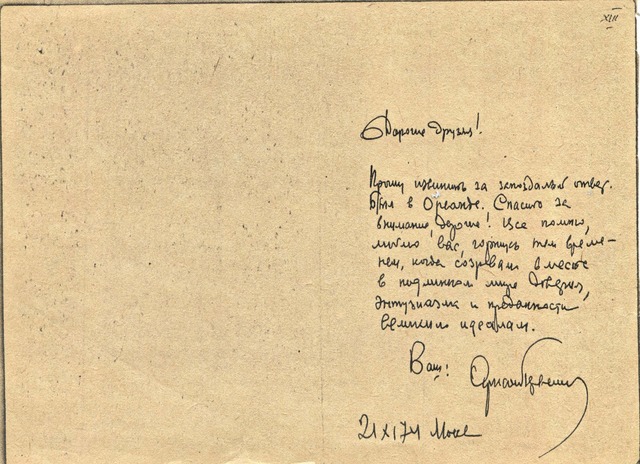 XII
Дорогие друзья!
Прошу извинить за запоздалый ответ.
Был в Ореанде. Спасибо за
внимание, дорогие! Все помню,
люблю вас, горжусь тем време-
нем, когда созревали вместе
в подлинном мире доверия,
энтузиазма и преданности
великим идеалам.
Ваш!
21 XI 74 Моск